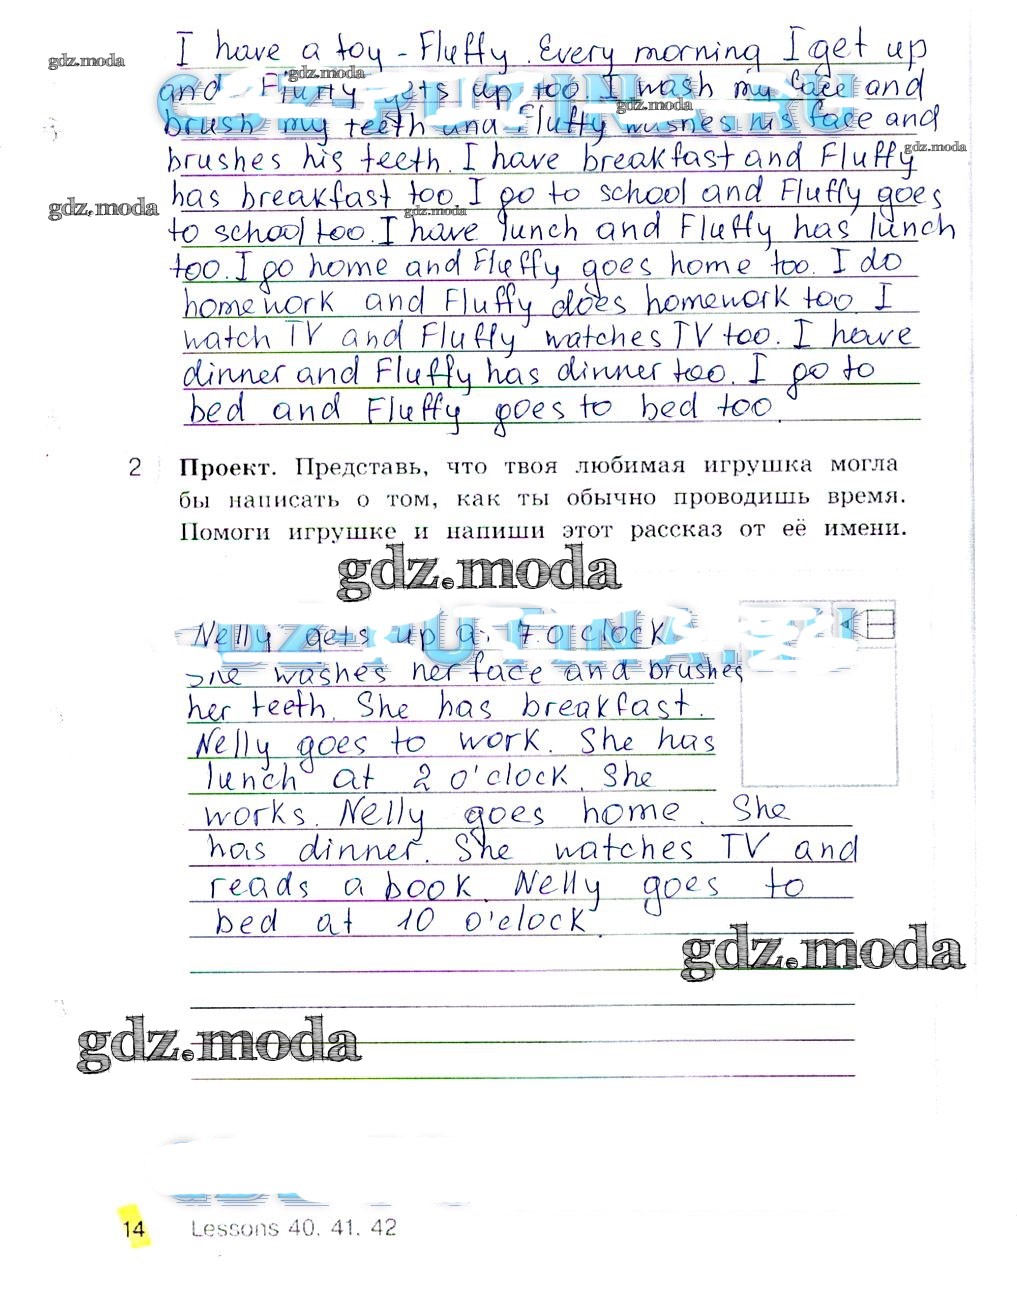 I have a toy - Fluffy. Every morning I get up
gdz.moda
gdz.moda
and Fluffy gets up too. I wash my face and
gdz.moda
brush my teeth and Fluffy washes his face and
brushes his teeth. I have breakfast and Fluffy
gdz.moda
has breakfast too. I go to school and Fluffy goes
gdz.moda
gdz.moda
to school too. I have lunch and Fluffy has lunch
too. I go home and Fluffy goes home too. I do
homework and Fluffy does homework too. I
watch TV and Fluffy watches TV too. I have
dinner and Fluffy has dinner too. I go to
bed and Fluffy goes to bed too.
2 Проект. Представь, что твоя любимая игрушка могла
бы написать о том, как ты обычно проводишь время.
Помоги игрушке и напиши этот рассказ от её имени.
gdz.moda
Nelly gets up a. 7 o'clock
She washes her face and brushes
her teeth. She has breakfast.
Nelly goes to work. She has
lunch at 2 o'clock. She
works. Nelly goes home. She
has dinner. She watches TV and
reads a book. Nelly goes to
bed at 10 o'clock.
gdz.moda
gdz.moda
14 Lessons 40, 41, 42